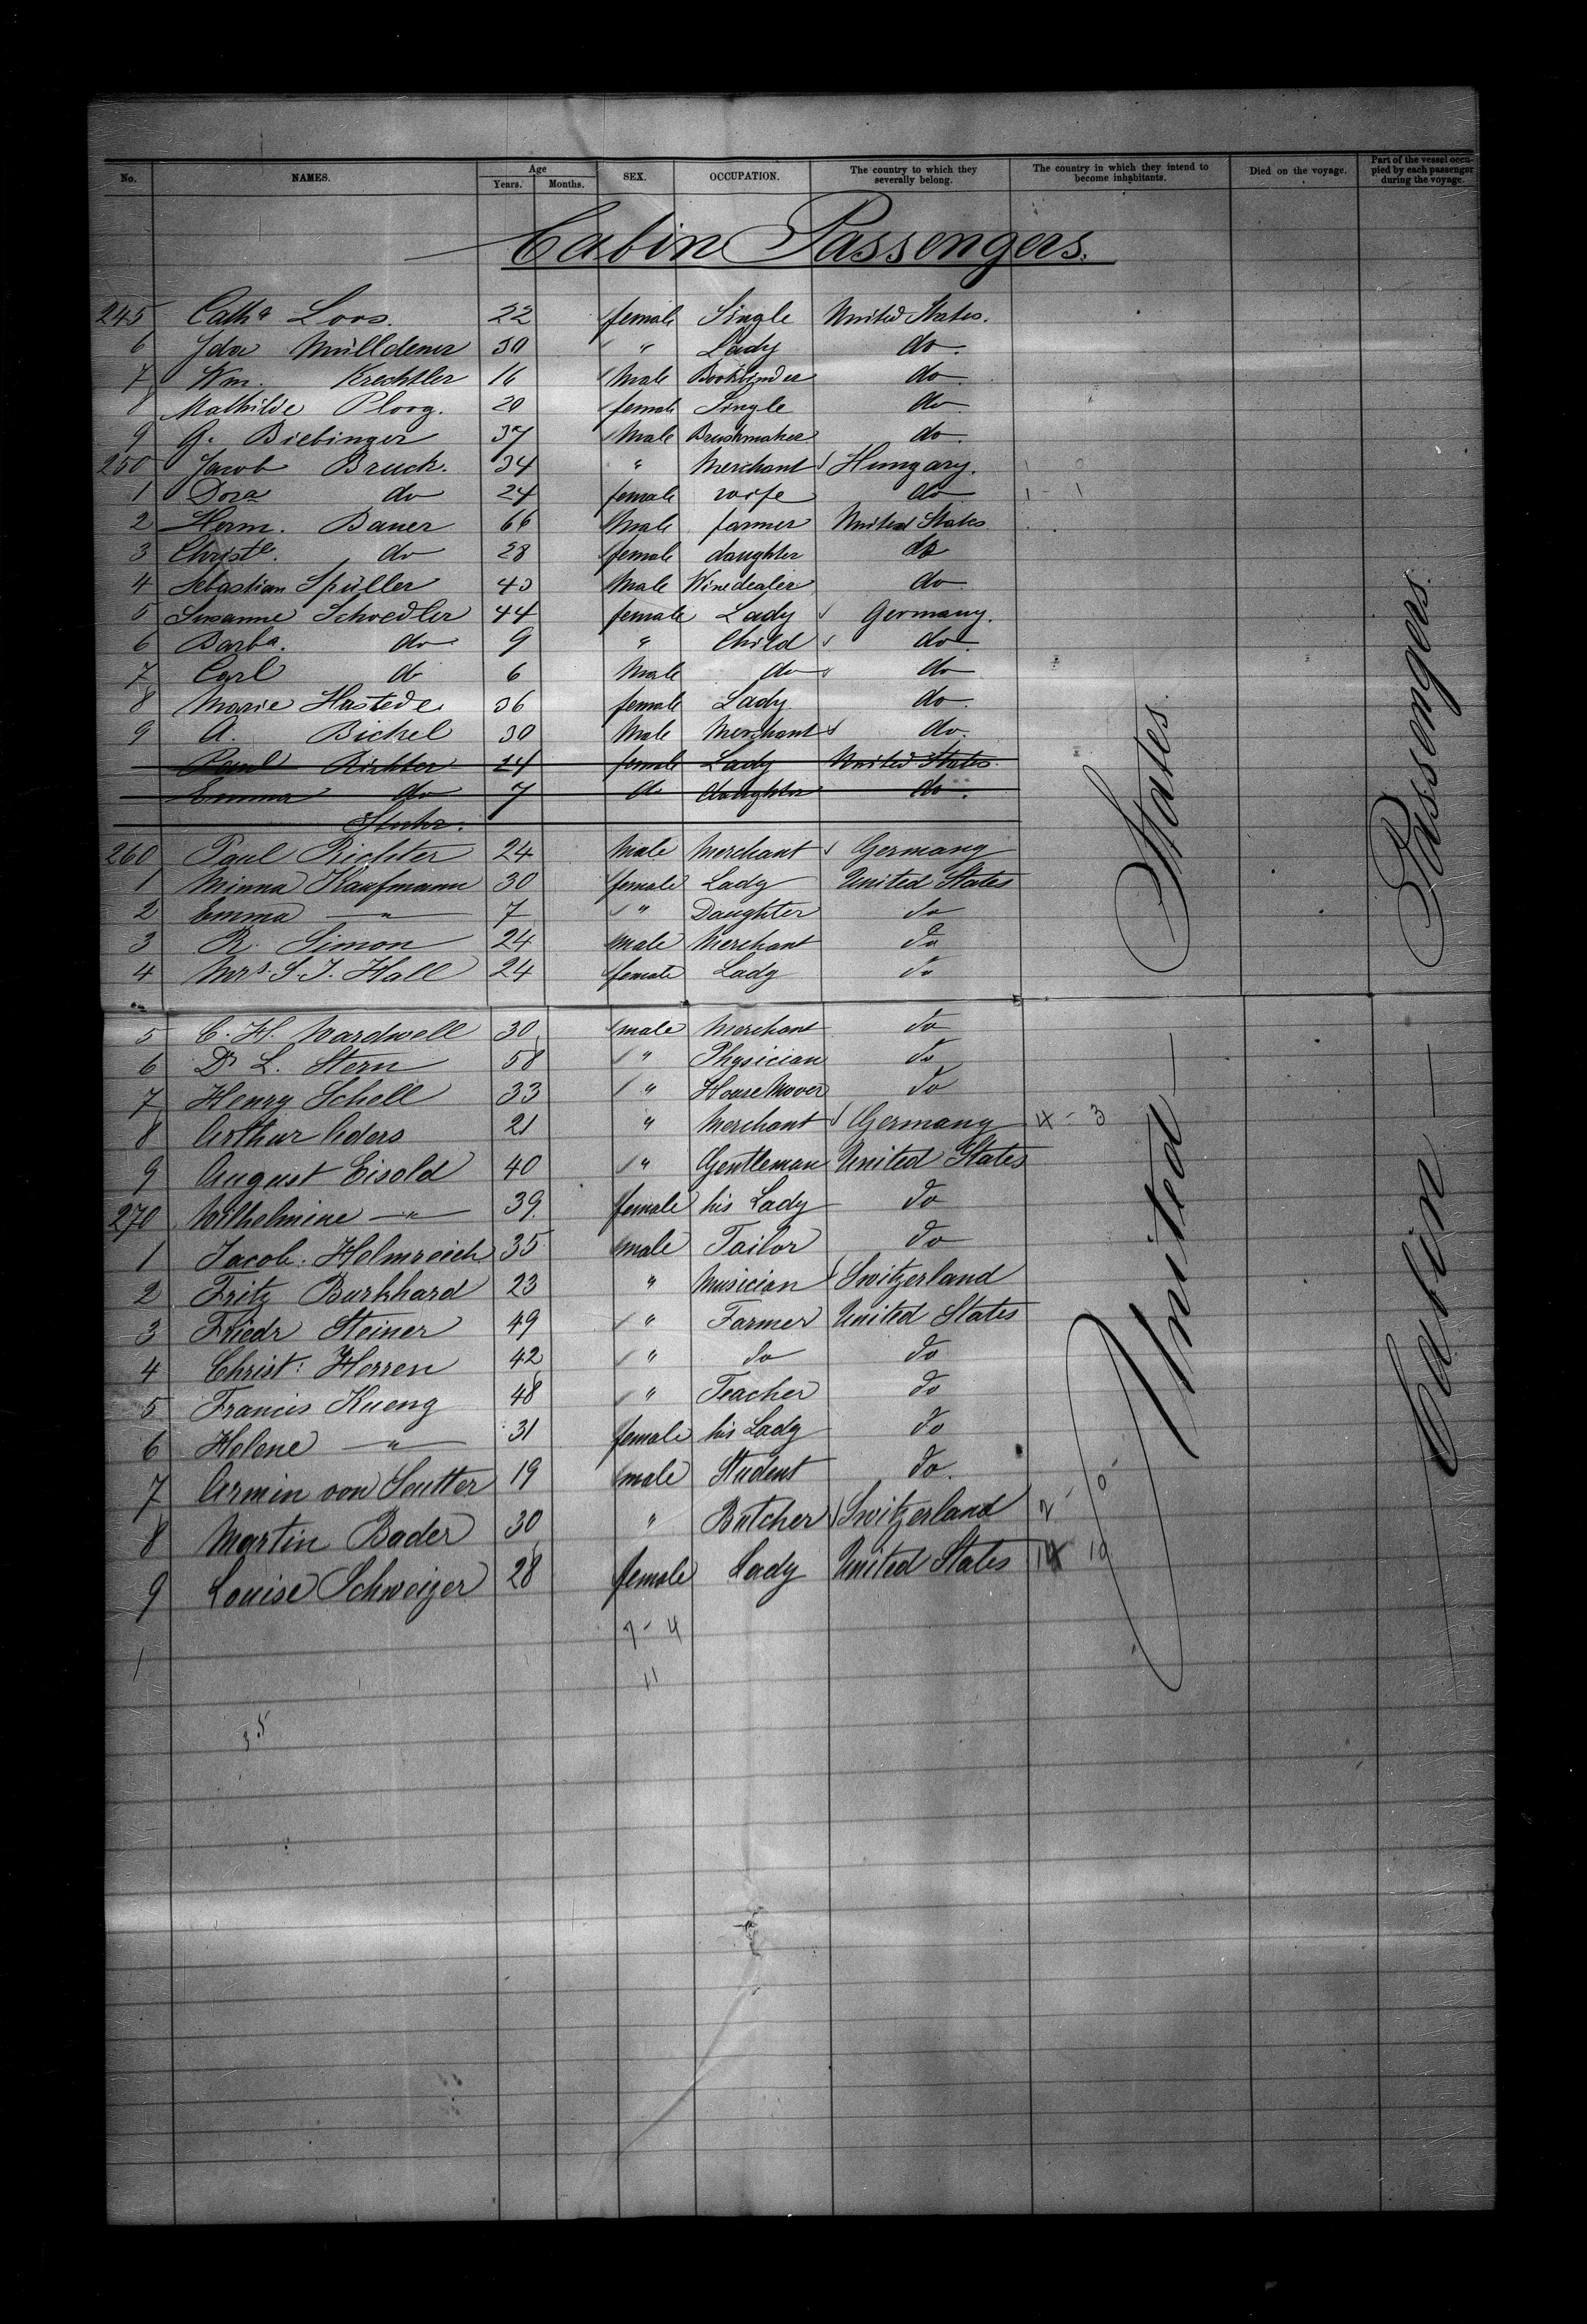 No. NAMES. Age Years. Months. SEX. OCCUPATION. The country to which they severally belong. The country in which they intend to become inhabitants. Died on the voyage. Part of the vessel occupied by each passenger during the voyage.
Cabin Passengers.
245 Catha Loos. 22 female Single United States.
6 Ida Mülldener 30 " Lady do.
7 Wm. Krechtler 16 Male Bookbinder do
8 Mathilde Ploog. 20 female Single do
9 G. Biebinger 37 Male Brushmaker do.
250 Jacob Bruck. 34 " Merchant Hungary.
1 Dora do 24 female wife do 1 - 1
2 Herm. Bauer 66 Male farmer United States
3 Christe. do 28 female daughter do
4 Sebastian Spüller 43 Male Winedealer do
5 Susanne Schoedler 44 female Lady Germany.
6 Barba. do 9 " Child do
7 Carl do 6 Male do do
8 Marie Hastede 36 female Lady do.
9 A. Bickel 30 Male Merchant do.
Paul Richter 24 female Lady United States.
Emma do 7 do daughter do.
Stuhr.
260 Paul Richter 24 Male Merchant Germany
1 Minna Kaufmann 30 female Lady United States
2 Emma " 7 " Daughter do
3 R. Simon 24 male Merchant do
4 Mrs. S. J. Hall 24 female Lady do
5 C. H. Wardwell 30 male Merchant do
6 Dr L. Stern 58 " Physician do
7 Henry Schell 33 " House Mover do
8 Arthur Aders 21 " Merchant Germany 4 - 3
9 August Eisold 40 " Gentleman United States
270 Wilhelmine " 39 female his Lady do
1 Jacob. Helmreich 35 male Tailor do
2 Fritz Burkhard 23 " Musician Switzerland
3 Friedr Steiner 49 " Farmer United States
4 Christ: Herren 42 " do do
5 Francis Kueng 48 " Teacher do
6 Helene " 31 female his Lady do
7 Armin von Sutter 19 male Student do.
8 Martin Bader 30 " Butcher Switzerland 2 - 0
9 Louise Schweizer 28 female Lady United States 10
7 - 4
1 11
35
United States
Cabin Passengers.